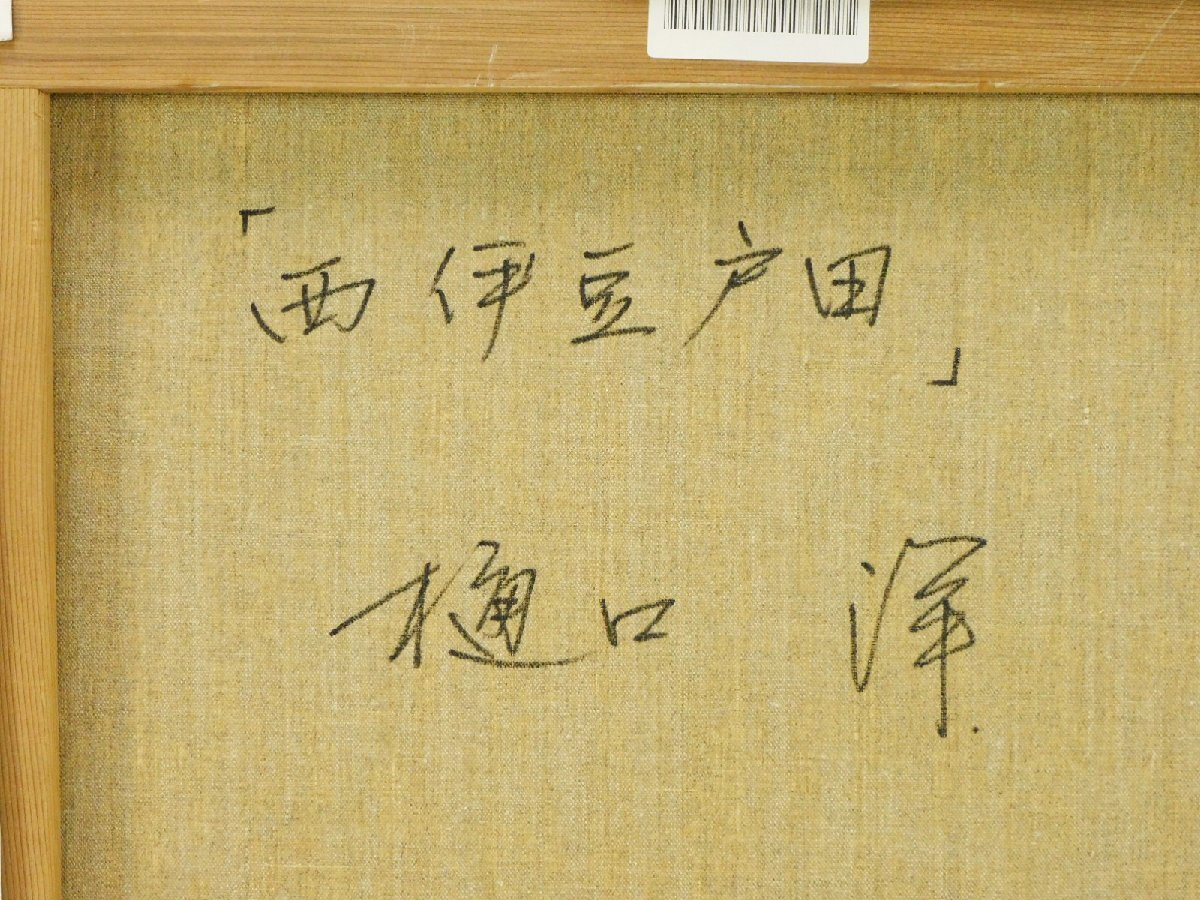 「西伊豆戸田」
樋口 渾